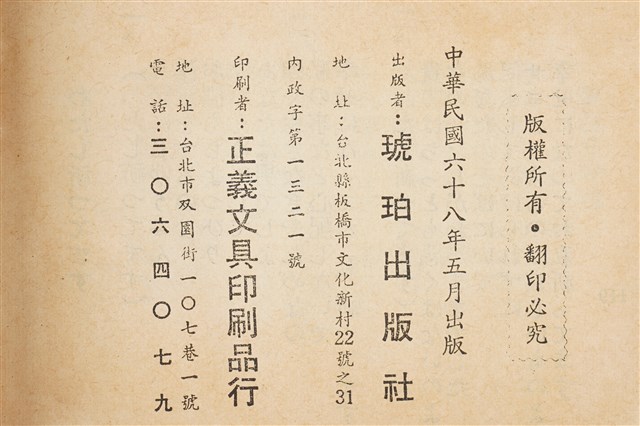 版權所有。翻印必究
中華民國六十八年五月出版
出版者：琥珀出版社
地址：台北縣板橋市文化新村22號之31
內政字第一三二一號
印刷者：正義文具印刷品行
地址：台北市双園街一〇七巷一號
電話：三〇六四〇七九